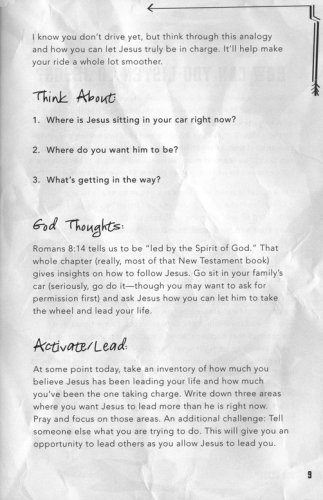 I know you don't drive yet, but think through this analogy
and how you can let Jesus truly be in charge. It'll help make
your ride a whole lot smoother.
Think About:
1. Where is Jesus sitting in your car right now?
2. Where do you want him to be?
3. What's getting in the way?
God Thoughts:
Romans 8:14 tells us to be "led by the Spirit of God." That
whole chapter (really, most of that New Testament book)
gives insights on how to follow Jesus. Go sit in your family's
car (seriously, go do it—though you may want to ask for
permission first) and ask Jesus how you can let him to take
the wheel and lead your life.
Activate/Lead:
At some point today, take an inventory of how much you
believe Jesus has been leading your life and how much
you've been the one taking charge. Write down three areas
where you want Jesus to lead more than he is right now.
Pray and focus on those areas. An additional challenge: Tell
someone else what you are trying to do. This will give you an
opportunity to lead others as you allow Jesus to lead you.
9